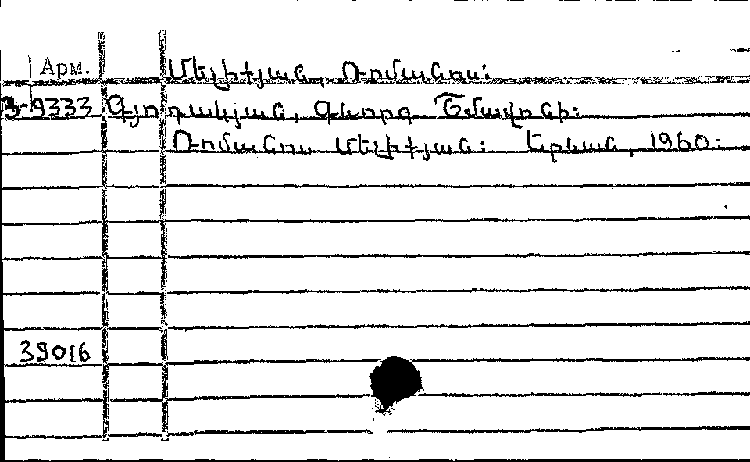 Арм. Մելիքյան, Ռոմանոս:
3-9333 Գյոդակյան, Գևորգ Շմավոնի:
Ռոմանոս Մելիքյան: Երևան, 1960:
39016